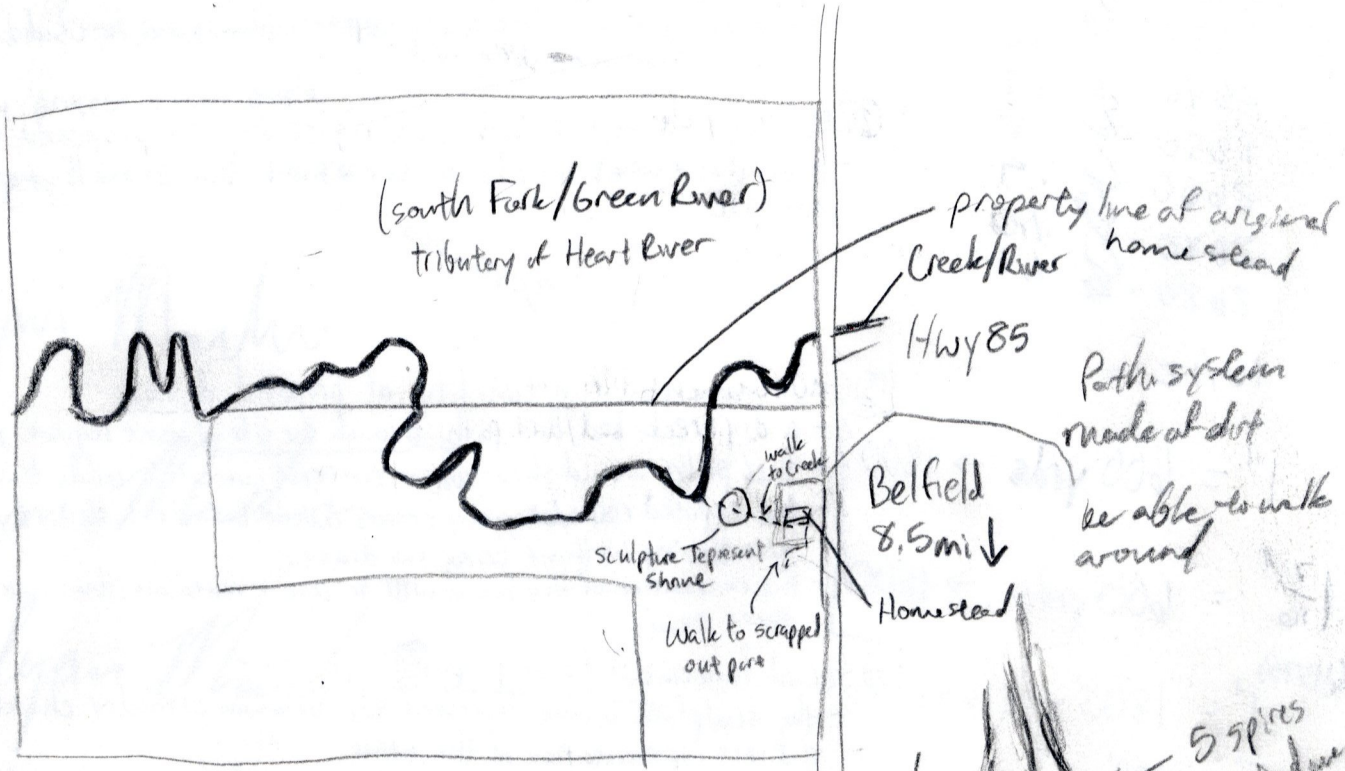 (south Fork/Green River)
tributary of Heart River
property line of original
homestead
Creek/River
Hwy 85
Path system
made of dirt
be able to walk
around
Belfield
8.5mi ↓
walk
to Creek
sculpture represent
shrine
Homestead
Walk to scrapped
out part
5 spires